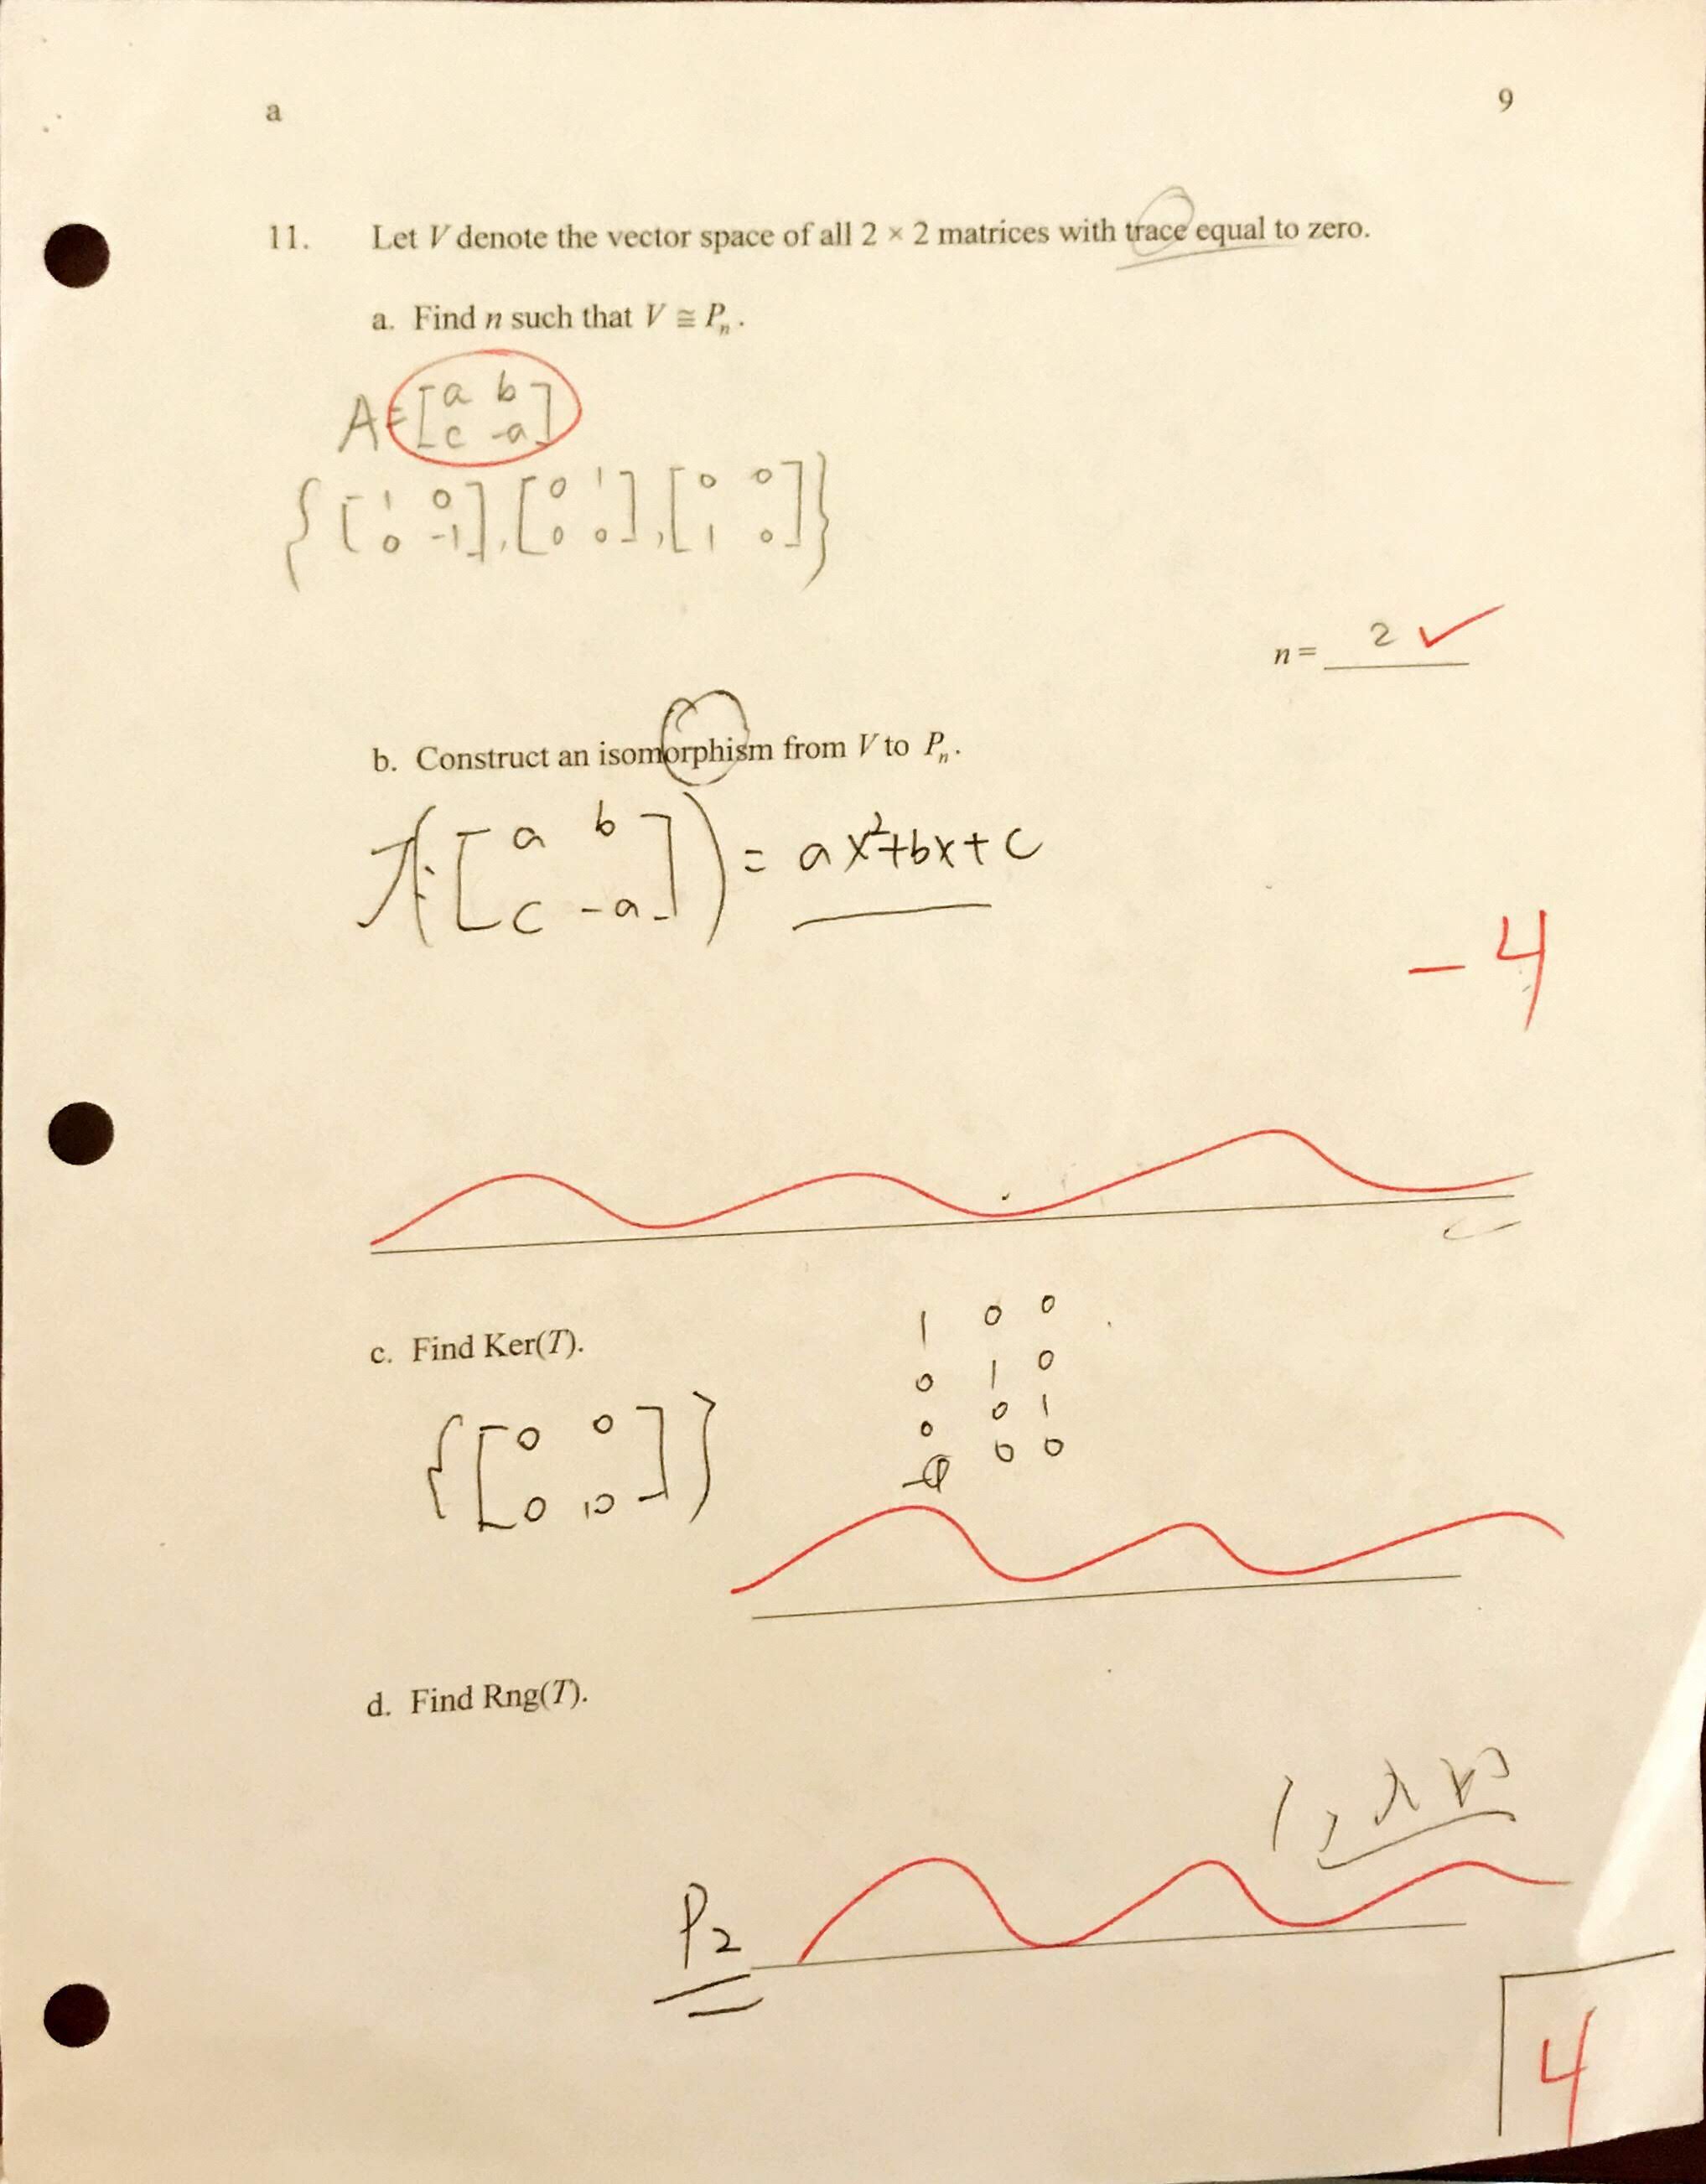 a
9
11. Let V denote the vector space of all 2 × 2 matrices with trace equal to zero.
a. Find n such that V ≅ Pₙ.
A = [a b
c -a]
{[1 0
0 -1], [0 1
0 0], [0 0
1 0]}
n = 2 ✓
b. Construct an isomorphism from V to Pₙ.
T([a b
c -a]) = ax²+bx+c
-4
c. Find Ker(T).
1 0 0
0 1 0
0 0 1
0 0
{[0 0
0 0]}
d. Find Rng(T).
1, x
P₂
4